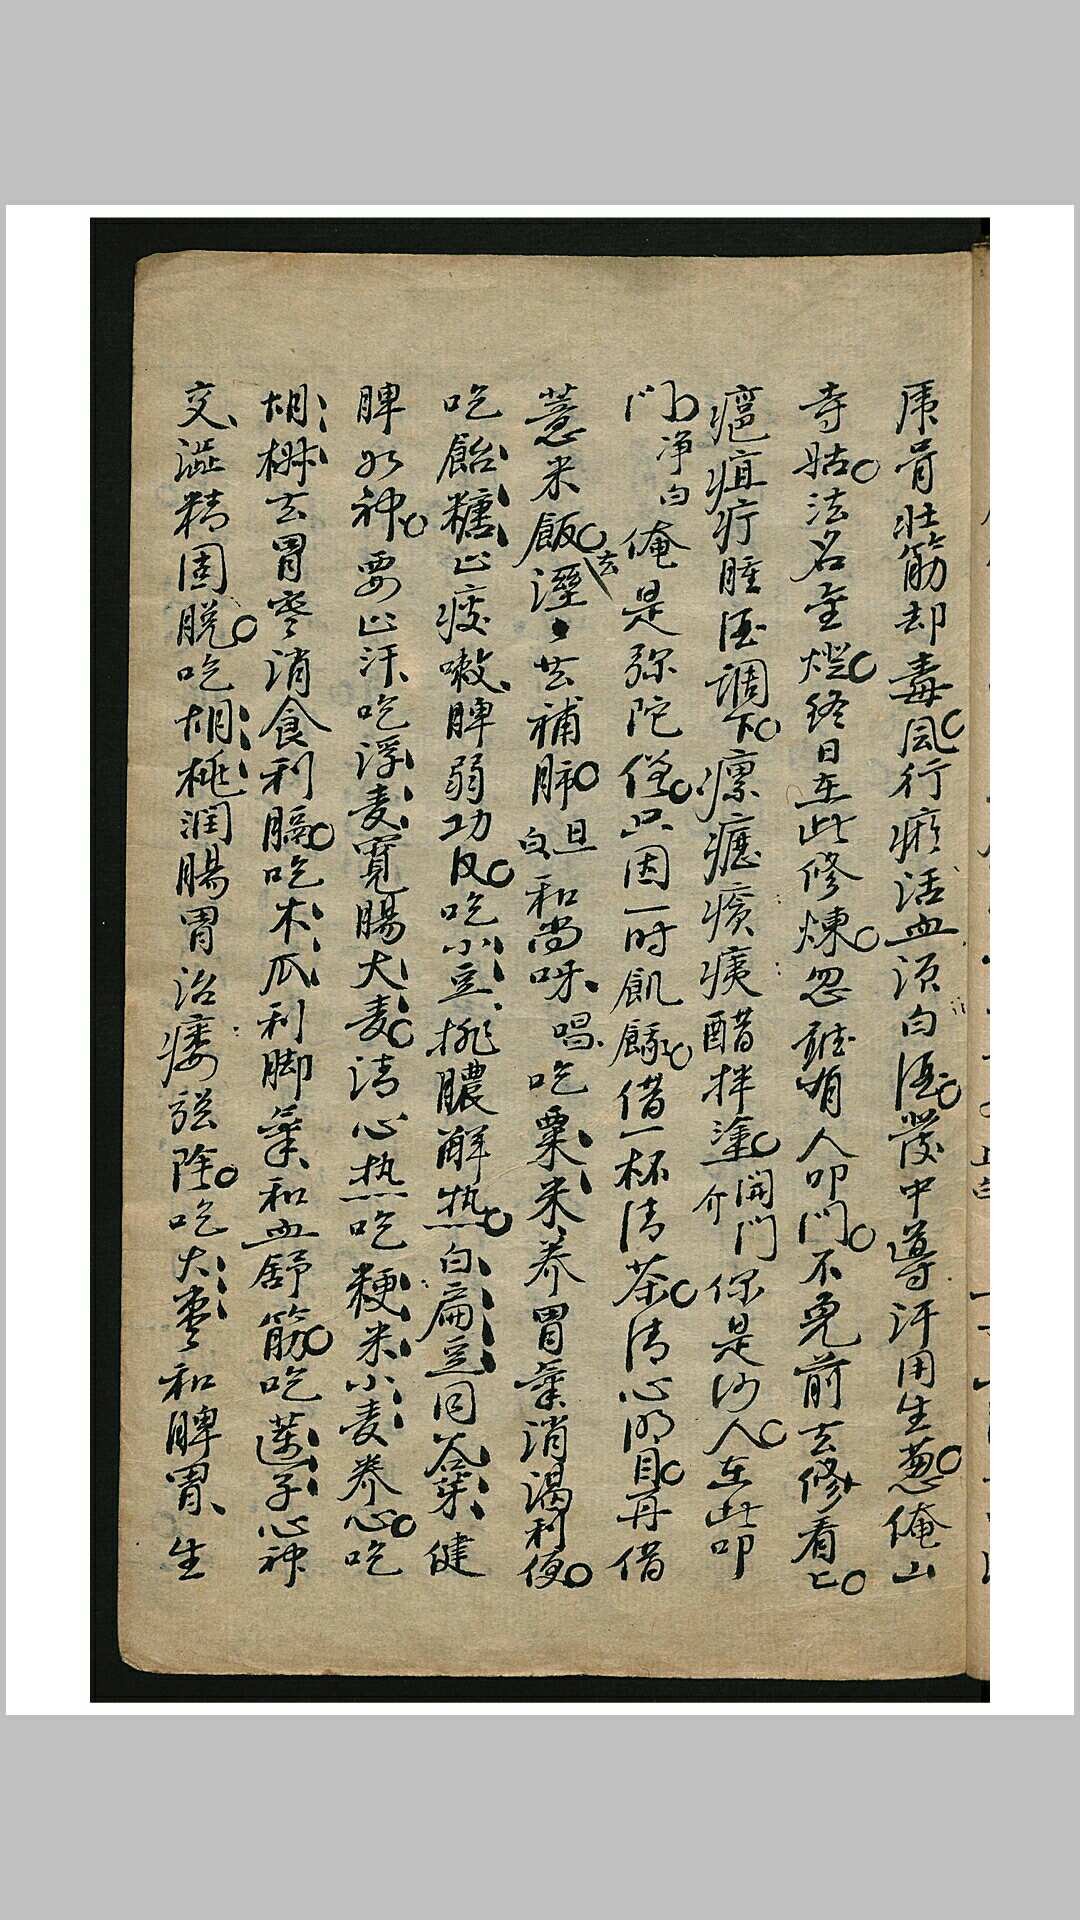 虎骨壮筋却毒風行瘀活血須白酒發中導汗用生葱俺山
寺姑法名金燈終日在此修煉忽聽有人叩门不免前去修看上
瘟疽疔腫酒調下瘰癧癀痍醋拌塗開門介你是何人在此叩
门净白俺是弥陀僧只因一时飢餓借一杯清茶清心明目再借
薏米飯去溼去補肺旦白和尚呀唱吃粟米养胃氣消渴利便
吃飴糖止痰嗽脾弱功收吃小豆排膿解热白扁豆同谷芽健
脾如神要止汗吃浮麦寬腸大麦清心热吃粳米小麦养心吃
胡椒去胃寒消食利膈吃木瓜利脚氣和血舒筋吃蓮子心神
交澁精固脱吃胡桃润腸胃治痿强陰吃大枣和脾胃生